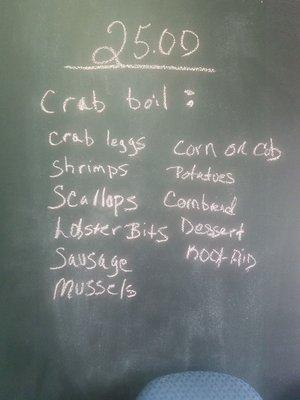 25.00
Crab boil:
Crab leggs
Shrimps
Scallops
Lobster Bits
Sausage
Mussels
Corn on Cob
Potatoes
Cornbread
Dessert
Kool-Aid